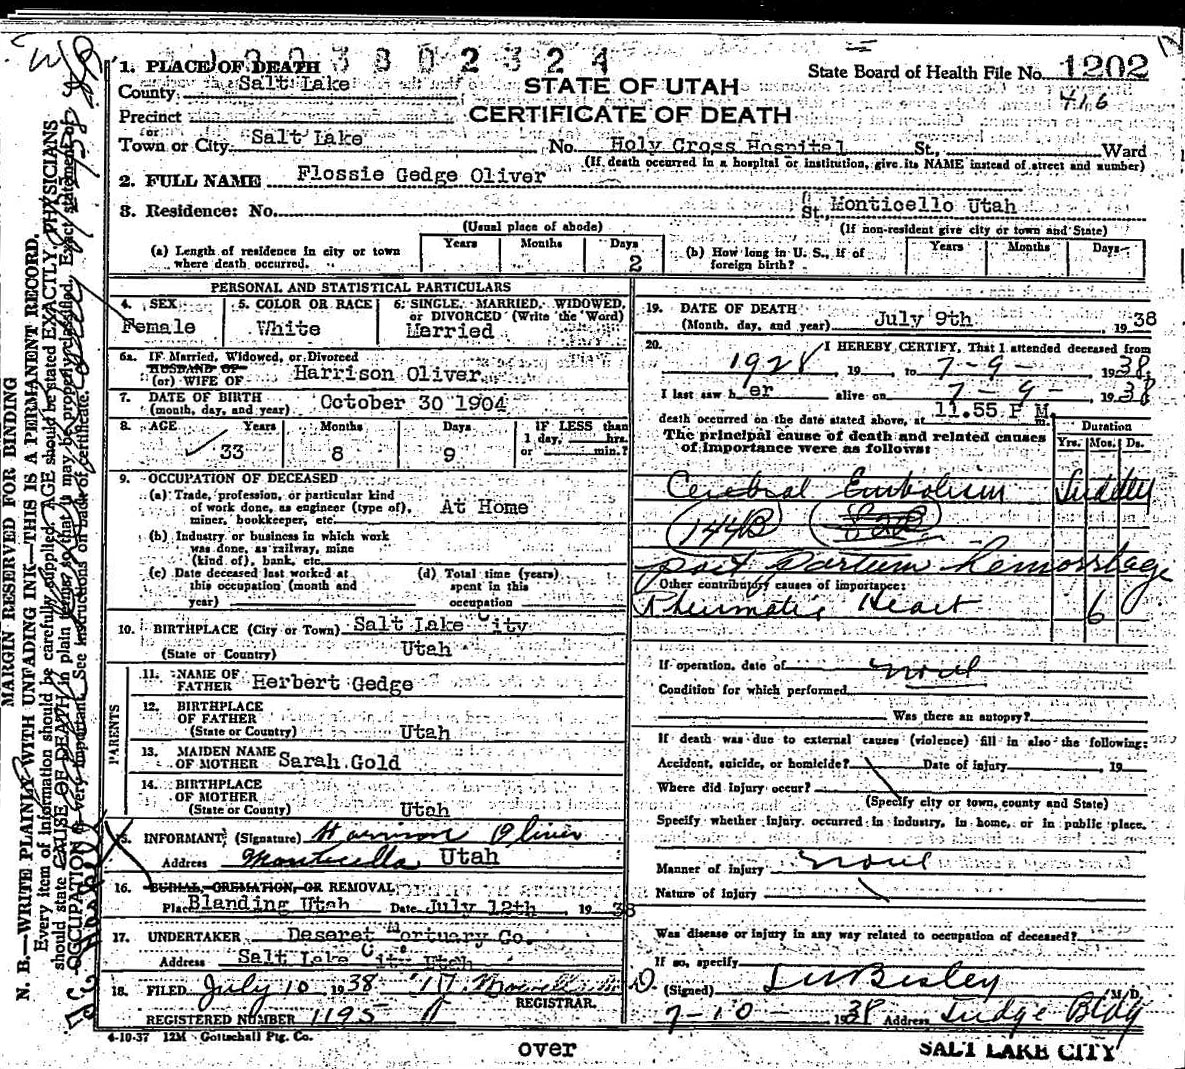 1 9 3 8 0 2 3 2 4
1. PLACE OF DEATH
STATE OF UTAH
State Board of Health File No. 1202
County Salt Lake
416
Precinct
CERTIFICATE OF DEATH
Town or City Salt Lake No. Holy Cross Hospital St., Ward
(If death occurred in a hospital or institution, give its NAME instead of street and number)
2. FULL NAME Flossie Gedge Oliver
3. Residence: No. St., Monticello Utah
(Usual place of abode) (If non-resident give city or town and State)
(a) Length of residence in city or town where death occurred. Years Months Days 2
(b) How long in U. S., if of foreign birth? Years Months Days
PERSONAL AND STATISTICAL PARTICULARS
4. SEX Female
5. COLOR OR RACE White
6. SINGLE, MARRIED, WIDOWED, or DIVORCED (Write the Word) Married
6a. IF Married, Widowed, or Divorced
HUSBAND OF
(or) WIFE OF Harrison Oliver
7. DATE OF BIRTH
(month, day, and year) October 30 1904
8. AGE Years Months Days IF LESS than
1 day, hrs.
33 8 9 or min.?
9. OCCUPATION OF DECEASED
(a) Trade, profession, or particular kind
of work done, as engineer (type of), At Home
miner, bookkeeper, etc.
(b) Industry or business in which work
was done, as railway, mine
(kind of), bank, etc.
(c) Date deceased last worked at
this occupation (month and
year)
(d) Total time (years)
spent in this
occupation
10. BIRTHPLACE (City or Town) Salt Lake City
(State or Country) Utah
PARENTS
11. NAME OF
FATHER Herbert Gedge
12. BIRTHPLACE
OF FATHER
(State or Country) Utah
13. MAIDEN NAME
OF MOTHER Sarah Gold
14. BIRTHPLACE
OF MOTHER
(State or County) Utah
15. INFORMANT: (Signature) Harrison Oliver
Address Monticello Utah
16. BURIAL, CREMATION, OR REMOVAL
Place Blanding Utah Date July 12th, 1938
17. UNDERTAKER Deseret Mortuary Co.
Address Salt Lake City Utah
18. FILED July 10 1938
REGISTRAR.
REGISTERED NUMBER 1195
4-10-37 12M Gottschall Ptg. Co.
19. DATE OF DEATH
(Month, day, and year) July 9th, 1938
20. I HEREBY CERTIFY, That I attended deceased from
1928, 19 to 7-9-, 1938.
I last saw her alive on 7-9-, 1938
death occurred on the date stated above, at 11.55 P M. m.
The principal cause of death and related causes
of importance were as follows:
Duration
Yrs. Mos. Ds.
Cerebral Embolism Sudden
(144B)
post Partum hemorrhage
Other contributory causes of importance:
Rheumatic Heart 6
If operation, date of none
Condition for which performed
Was there an autopsy?
If death was due to external causes (violence) fill in also the following:
Accident, suicide, or homicide? Date of injury , 19
Where did injury occur?
(Specify city or town, county and State)
Specify whether injury occurred in industry, in home, or in public place.
Manner of injury none
Nature of injury
Was disease or injury in any way related to occupation of deceased?
If so, specify
(Signed) M. D.
7-10-1938 Address Judge Bldg
over
SALT LAKE CITY
MARGIN RESERVED FOR BINDING
N. B.—WRITE PLAINLY WITH UNFADING INK—THIS IS A PERMANENT RECORD.
Every item of information should be carefully supplied. AGE should be stated EXACTLY. PHYSICIANS
should state CAUSE OF DEATH in plain terms, so that it may be properly classified. Exact statement of
OCCUPATION is very important. See instructions on back of certificate.